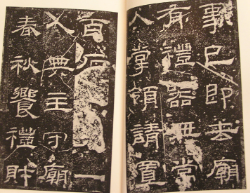 事已即去廟
有禮器無常
人掌領請置
百石一
人典主守廟
春秋饗禮財